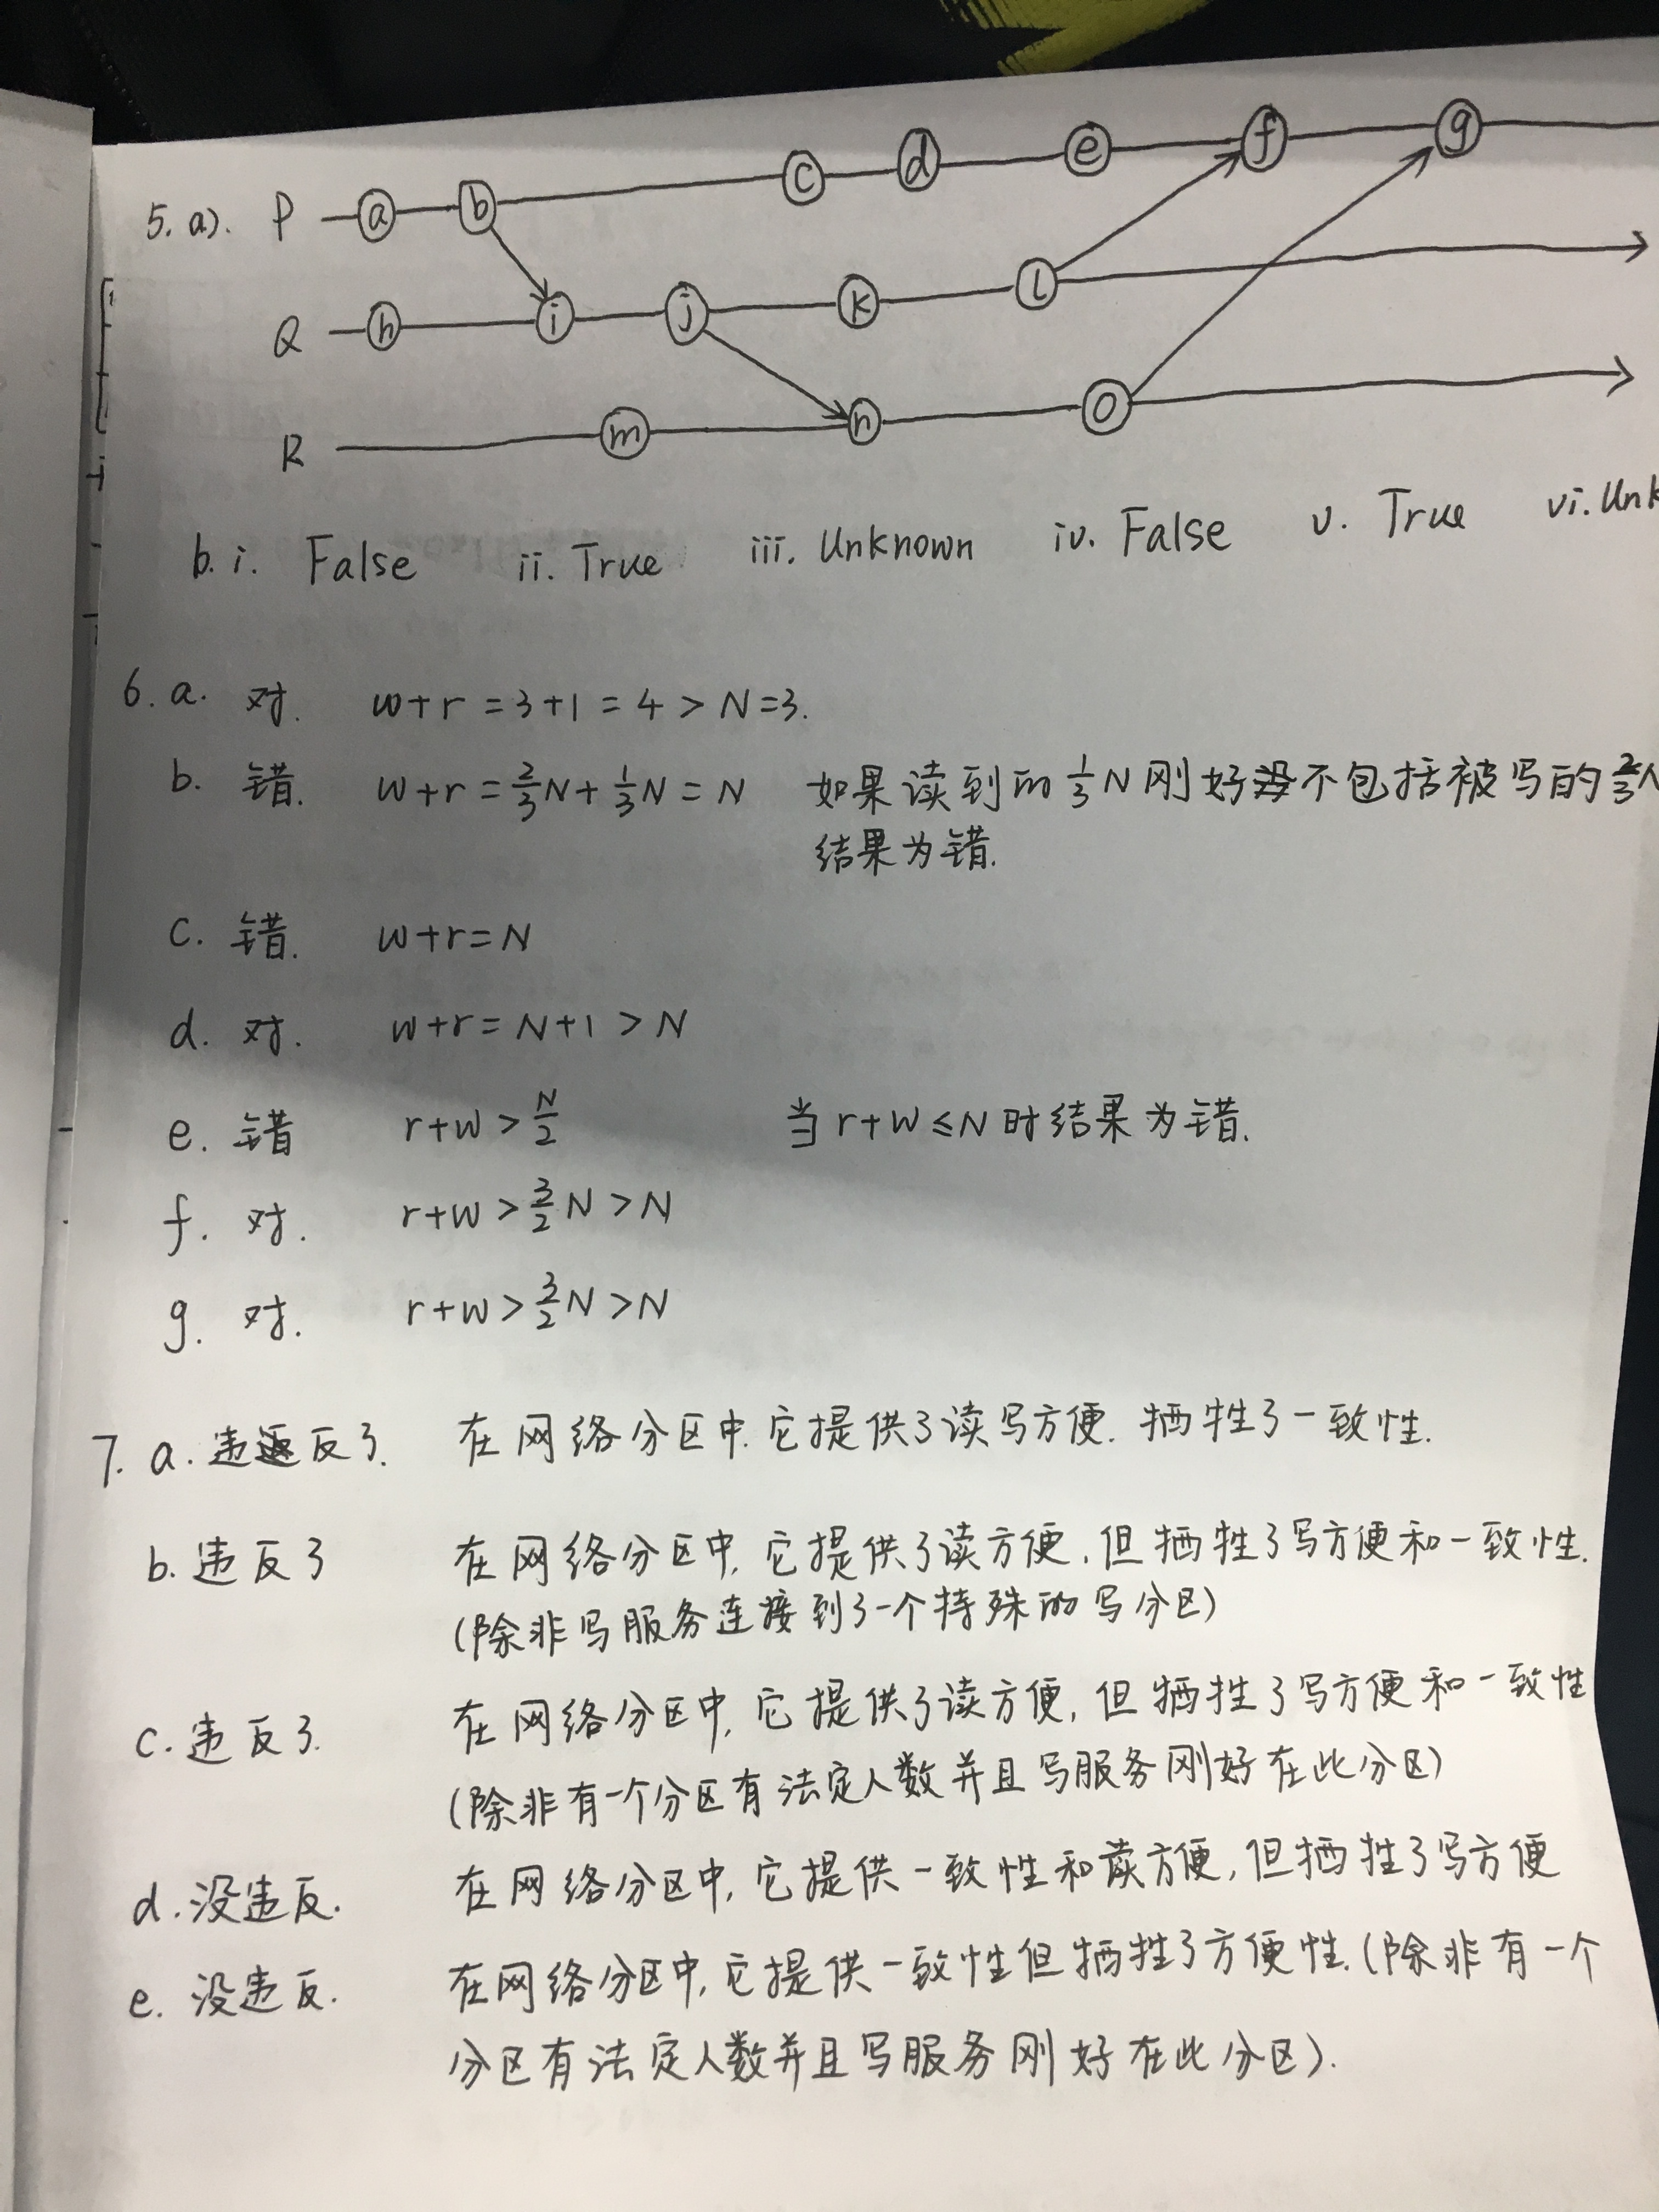 5. a). P a b c d e f g
Q h i j k l
R m n o
b. i. False ii. True iii. Unknown iv. False v. True vi. Unk
6. a. 对. w+r=3+1=4>N=3.
b. 错. w+r=2/3N+1/3N=N 如果读到的1/3N刚好不包括被写的2/3N
结果为错.
c. 错. w+r=N
d. 对. w+r=N+1>N
e. 错 r+w>N/2 当r+w≤N时结果为错.
f. 对. r+w>3/2N>N
g. 对. r+w>3/2N>N
7. a. 违反了. 在网络分区中.它提供了读写方便.牺牲了一致性.
b. 违反了 在网络分区中,它提供了读方便,但牺牲了写方便和一致性.
(除非写服务连接到了一个特殊的写分区)
c. 违反了. 在网络分区中,它提供了读方便,但牺牲了写方便和一致性
(除非有一个分区有法定人数并且写服务刚好在此分区)
d. 没违反. 在网络分区中,它提供一致性和读方便,但牺牲了写方便
e. 没违反. 在网络分区中,它提供一致性但牺牲了方便性.(除非有一个
分区有法定人数并且写服务刚好在此分区).